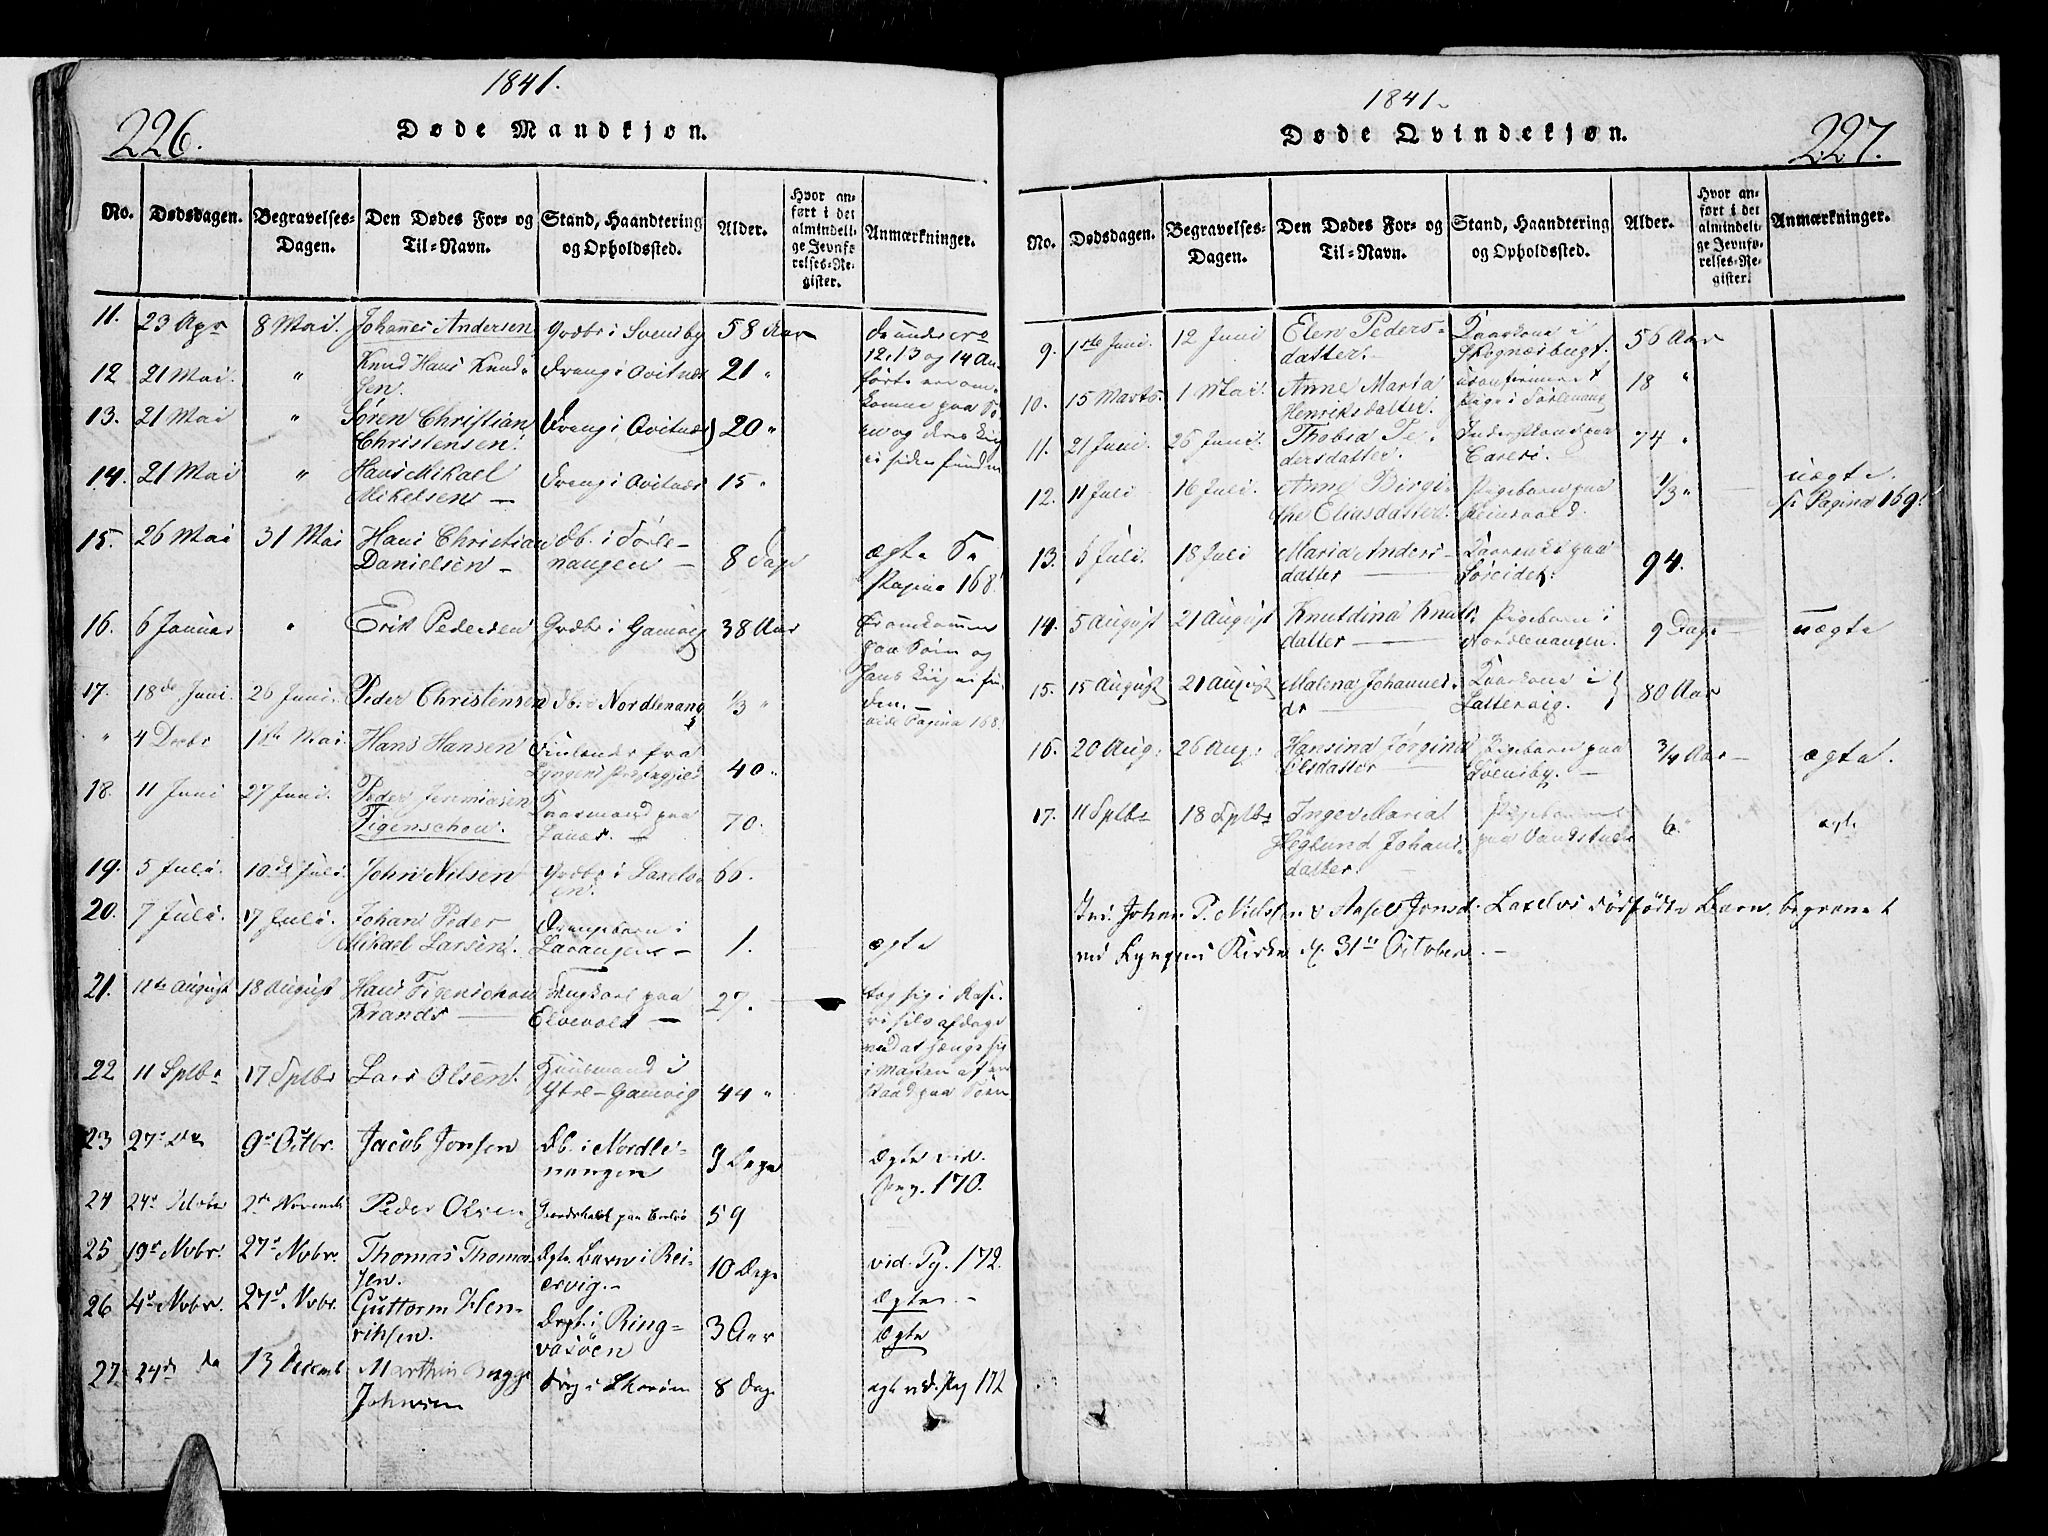 1841.
226.
Døde Mandkjøn.
No. Dødsdagen. Begravelses-Dagen. Den Dødes For- og Til-Navn. Stand, Haandtering og Opholdssted. Alder. Hvor anført i det almindelige Jevnførelses-Register. Anmærkninger.
11. 23 Apr 8 Mai. Johannes Andersen Grdbr i Svensby 58 Aar
12 21 Mai. " Knud Hans Knudsen. Dreng i Qvitnæs 21 "
12, 13 og 14 Anførte ere omkomne paa Søen og deres Liig ei siden funden
13. 21 Mai " Sören Christian Christensen. Dreng i Qvitnæs 20 "
14. 21 Mai " Hans Mikael Mikelsen — Dreng i Qvitnæs 15 "
15. 26 Mai 31 Mai Hans Christian Danielsen — Db. i Sörlenangen — 8 Dage ægte Pagina 168
16. 6 Januar " Erik Pedersen Grdbr i Gamvig 38 Aar Omkommen paa Søen og hans Liig ei funden. —
17. 18de Juni. 26 Juni. Peder Christensen Db. i Nordlenang 1/3 " vide Pagina 168
" 4 Decbr 1ste Mai. Hans Hansen Finlænder fra Lyngens Præstegjeld 40 "
18. 11 Juni 27 Juni. Peder Jeremiasen Figenschou. Kaarmand paa 70.
19. 5 Juli. 10de Juli. John Nilsen Grdbr i Laxelven. 60.
20. 7 Juli. 17 Juli. Johan Peder Mikael Larsen. Drengebarn i Lavangen — 1. ægte
21. 11te August 18 August Hans Figenschou Krands — Ungkarl paa Elvevold — 27. tog sig i Raseri selv af dage ved at hænge sig i Masten af en Baad paa Søen
22 11 Sptbr 17 Sptbr Lars Olsen. Huusmand i Ytre-Gamvig 44 "
23 27de 9de Octbr. Jacob Jonsen Db. i Nordlenangen 9 Dage Ægte vid. pag. 170.
24 24de October 2den Novemb Peder Olsen 59
25 19de Novbr. 27de Novbr. Thomas Thomassen. Ægte Barn i Reiervig. — 10 Dage vid. Pg. 172. Ægte. —
26 4de Novbr. 27de Novbr. Guttorm Henriksen. i Ringvasöen 3 Aar Ægte
27. 24de do 13 Decemb Marthin Bugge Johnsen Dreng i 8 Dage ægte vid. Pag 172
1841.
Døde Qvindekjøn.
227.
No. Dødsdagen. Begravelses-Dagen. Den Dødes For- og Til-Navn. Stand, Haandtering og Opholdssted. Alder. Hvor anført i det almindelige Jevnførelses-Register. Anmærkninger.
9. 1ste Juni. 12 Juni Elen Pedersdatter. Kaarkone i Skognæsbugt. 56 Aar
10. 15 Marts. 1 Mai. Anne Maria Henriksdatter. uconfirmeret Pige i Sörlenang 18 "
11. 21 Juni. 26 Juni. Thobia Pedersdatter. paa 74 "
12. 11 Juli 16 Juli. Anne Birgithe Eliasdatter. Pigebarn paa Reinsvold. 1/3 " uægte Pagina 169.
13. 6 Juli. 18 Juli Maria Andersdatter — paa Söreidet. 94.
14. 5 August 21 August Knutdina Knutsdatter — Pigebarn i Nordlenangen. 9 Dage — uægte
15. 15 August 21 August Malena Johannesdr — Kaarkone i Lattervig. 80 Aar
16. 20 Aug: 26 Aug: Hansina Jörgina Olsdatter — Pigebarn paa Svensby. — 3/4 Aar — ægte.
17. 11 Sptbr 18 Sptbr Inger Maria Heglund Johansdatter. Pigebarn paa 6. " ægte
Johan P. Nielsen & Jonsd. Laxelvs dødfödte Barn, begravet
ved Lyngens Kirke d. 31te October. —